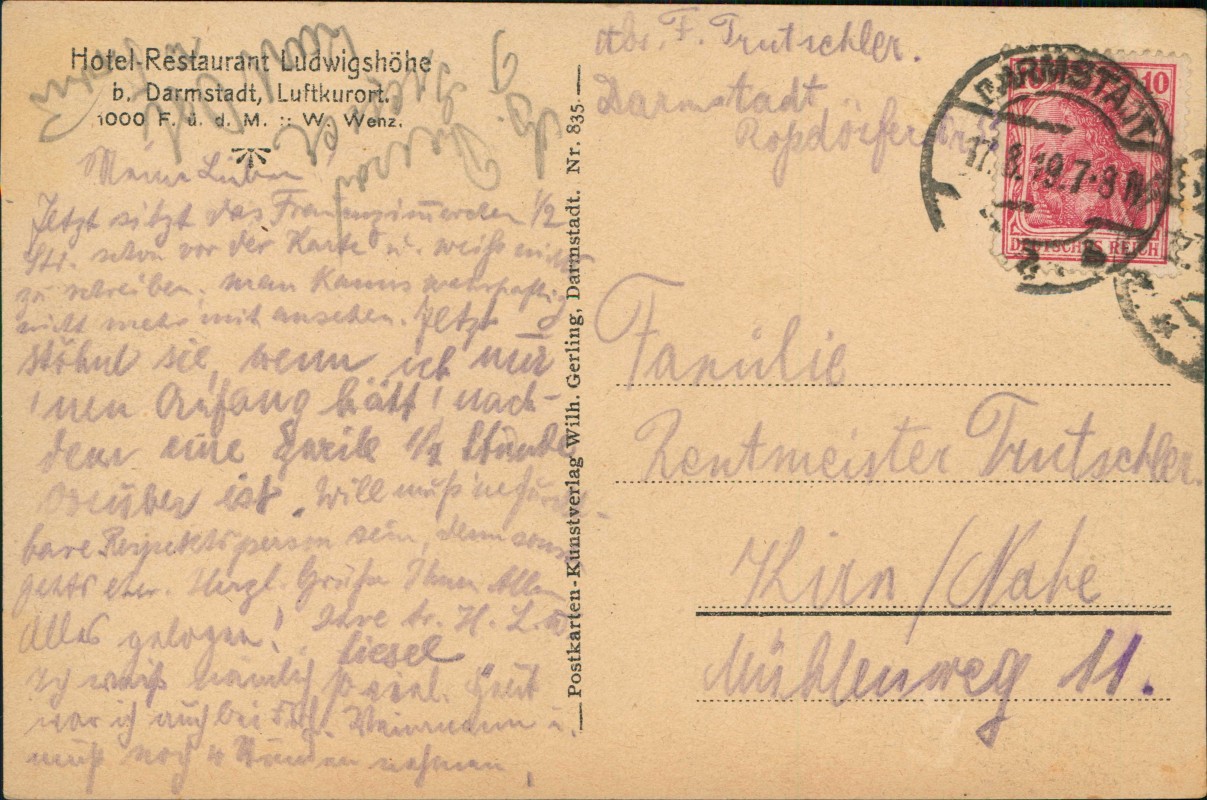 Hotel-Restaurant Ludwigshöhe
b. Darmstadt, Luftkurort.
1000 F. ü. d. M. :: W. Wenz.
Meine Lieben!
Jetzt sitzt das Frauenzimmerchen 1/2
Std. schon vor der Karte u. weiß nicht
zu schreiben, man kanns wahrhaftig
nicht mehr mit ansehen. Jetzt
stöhnt sie, wenn ich nur
'nen Anfang hätt' nach-
dem eine 1/2 Stunde
vorüber ist. Will muß 'ne
bare Respektsperson sein, denn sonst
gehts eher. Herzl. Grüße Ihnen Allen
Alles gelogen! H. L.
Liesel
Ich weiß nämlich so viel. Heut
war ich auch bei Weinmann u.
muß noch 4 Stunden nehmen.
Postkarten-Kunstverlag Wilh. Gerling, Darmstadt. Nr. 835.
Abs. F. Trutschler.
Darmstadt
Roßdörferstr.
DARMSTADT
17.8.19.7-8 N
10
DEUTSCHES REICH
Familie
Rentmeister Trutschler.
Kirn/Nahe
Mühlenweg 11.